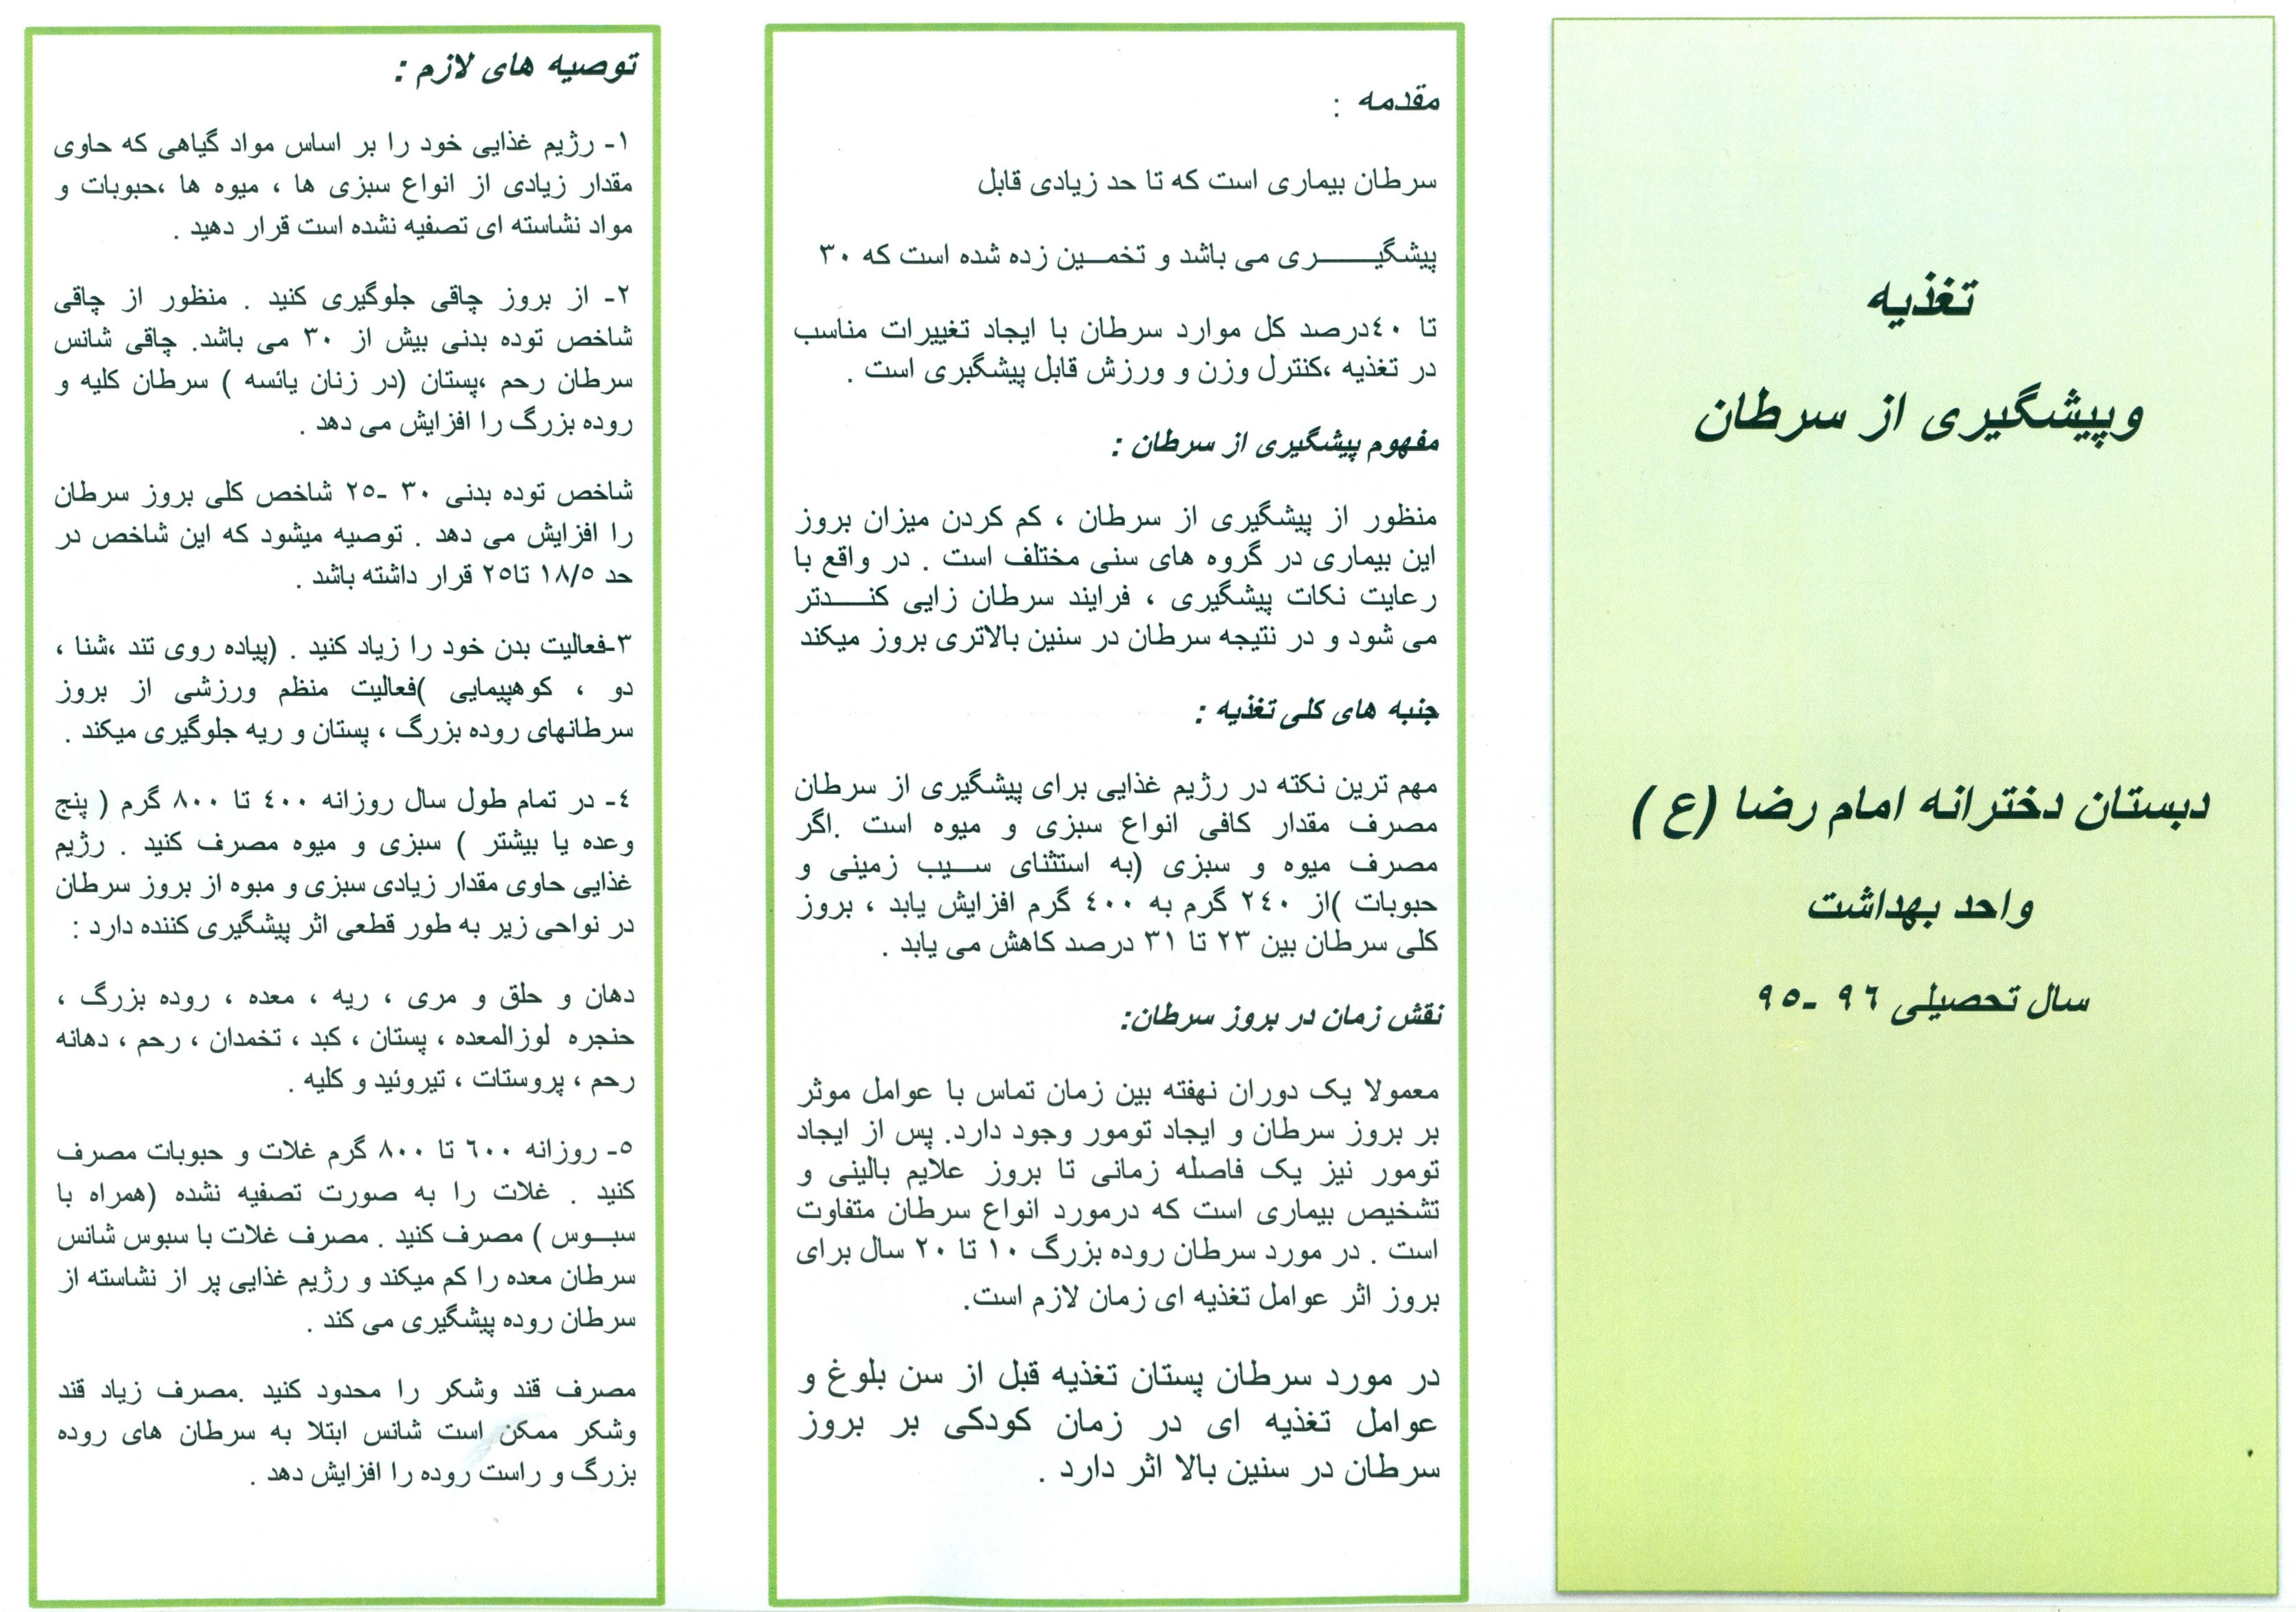 تغذیه
وپیشگیری از سرطان
دبستان دخترانه امام رضا (ع)
واحد بهداشت
سال تحصیلی ٩٦ -٩٥
مقدمه :
سرطان بیماری است که تا حد زیادی قابل
پیشگیـــــــری می باشد و تخمـــین زده شده است که ٣٠
تا ٤٠درصد کل موارد سرطان با ایجاد تغییرات مناسب
در تغذیه ،کنترل وزن و ورزش قابل پیشگبری است .
مفهوم پیشگیری از سرطان :
منظور از پیشگیری از سرطان ، کم کردن میزان بروز
این بیماری در گروه های سنی مختلف است . در واقع با
رعایت نکات پیشگیری ، فرایند سرطان زایی کنـــدتر
می شود و در نتیجه سرطان در سنین بالاتری بروز میکند
جنبه های کلی تغذیه :
مهم ترین نکته در رژیم غذایی برای پیشگیری از سرطان
مصرف مقدار کافی انواع سبزی و میوه است .اگر
مصرف میوه و سبزی (به استثنای ســیب زمینی و
حبوبات )از ٢٤٠ گرم به ٤٠٠ گرم افزایش یابد ، بروز
کلی سرطان بین ٢٣ تا ٣١ درصد کاهش می یابد .
نقش زمان در بروز سرطان:
معمولا یک دوران نهفته بین زمان تماس با عوامل موثر
بر بروز سرطان و ایجاد تومور وجود دارد. پس از ایجاد
تومور نیز یک فاصله زمانی تا بروز علایم بالینی و
تشخیص بیماری است که درمورد انواع سرطان متفاوت
است . در مورد سرطان روده بزرگ ١٠ تا ٢٠ سال برای
بروز اثر عوامل تغذیه ای زمان لازم است.
در مورد سرطان پستان تغذیه قبل از سن بلوغ و
عوامل تغذیه ای در زمان کودکی بر بروز
سرطان در سنین بالا اثر دارد .
توصیه های لازم :
١- رژیم غذایی خود را بر اساس مواد گیاهی که حاوی
مقدار زیادی از انواع سبزی ها ، میوه ها ،حبوبات و
مواد نشاسته ای تصفیه نشده است قرار دهید .
٢- از بروز چاقی جلوگیری کنید . منظور از چاقی
شاخص توده بدنی بیش از ٣٠ می باشد. چاقی شانس
سرطان رحم ،پستان (در زنان یائسه ) سرطان کلیه و
روده بزرگ را افزایش می دهد .
شاخص توده بدنی ٣٠ -٢٥ شاخص کلی بروز سرطان
را افزایش می دهد . توصیه میشود که این شاخص در
حد ١٨/٥ تا٢٥ قرار داشته باشد .
٣-فعالیت بدن خود را زیاد کنید . (پیاده روی تند ،شنا ،
دو ، کوهپیمایی )فعالیت منظم ورزشی از بروز
سرطانهای روده بزرگ ، پستان و ریه جلوگیری میکند .
٤- در تمام طول سال روزانه ٤٠٠ تا ٨٠٠ گرم ( پنج
وعده یا بیشتر ) سبزی و میوه مصرف کنید . رژیم
غذایی حاوی مقدار زیادی سبزی و مبوه از بروز سرطان
در نواحی زیر به طور قطعی اثر پیشگیری کننده دارد :
دهان و حلق و مری ، ریه ، معده ، روده بزرگ ،
حنجره  لوزالمعده ، پستان ، کبد ، تخمدان ، رحم ، دهانه
رحم ، پروستات ، تیروئید و کلیه .
٥- روزانه ٦٠٠ تا ٨٠٠ گرم غلات و حبوبات مصرف
کنید . غلات را به صورت تصفیه نشده (همراه با
سبـــوس ) مصرف کنید . مصرف غلات با سبوس شانس
سرطان معده را کم میکند و رژیم غذایی پر از نشاسته از
سرطان روده پیشگیری می کند .
مصرف قند وشکر را محدود کنید .مصرف زیاد قند
وشکر ممکن است شانس ابتلا به سرطان های روده
بزرگ و راست روده را افزایش دهد .